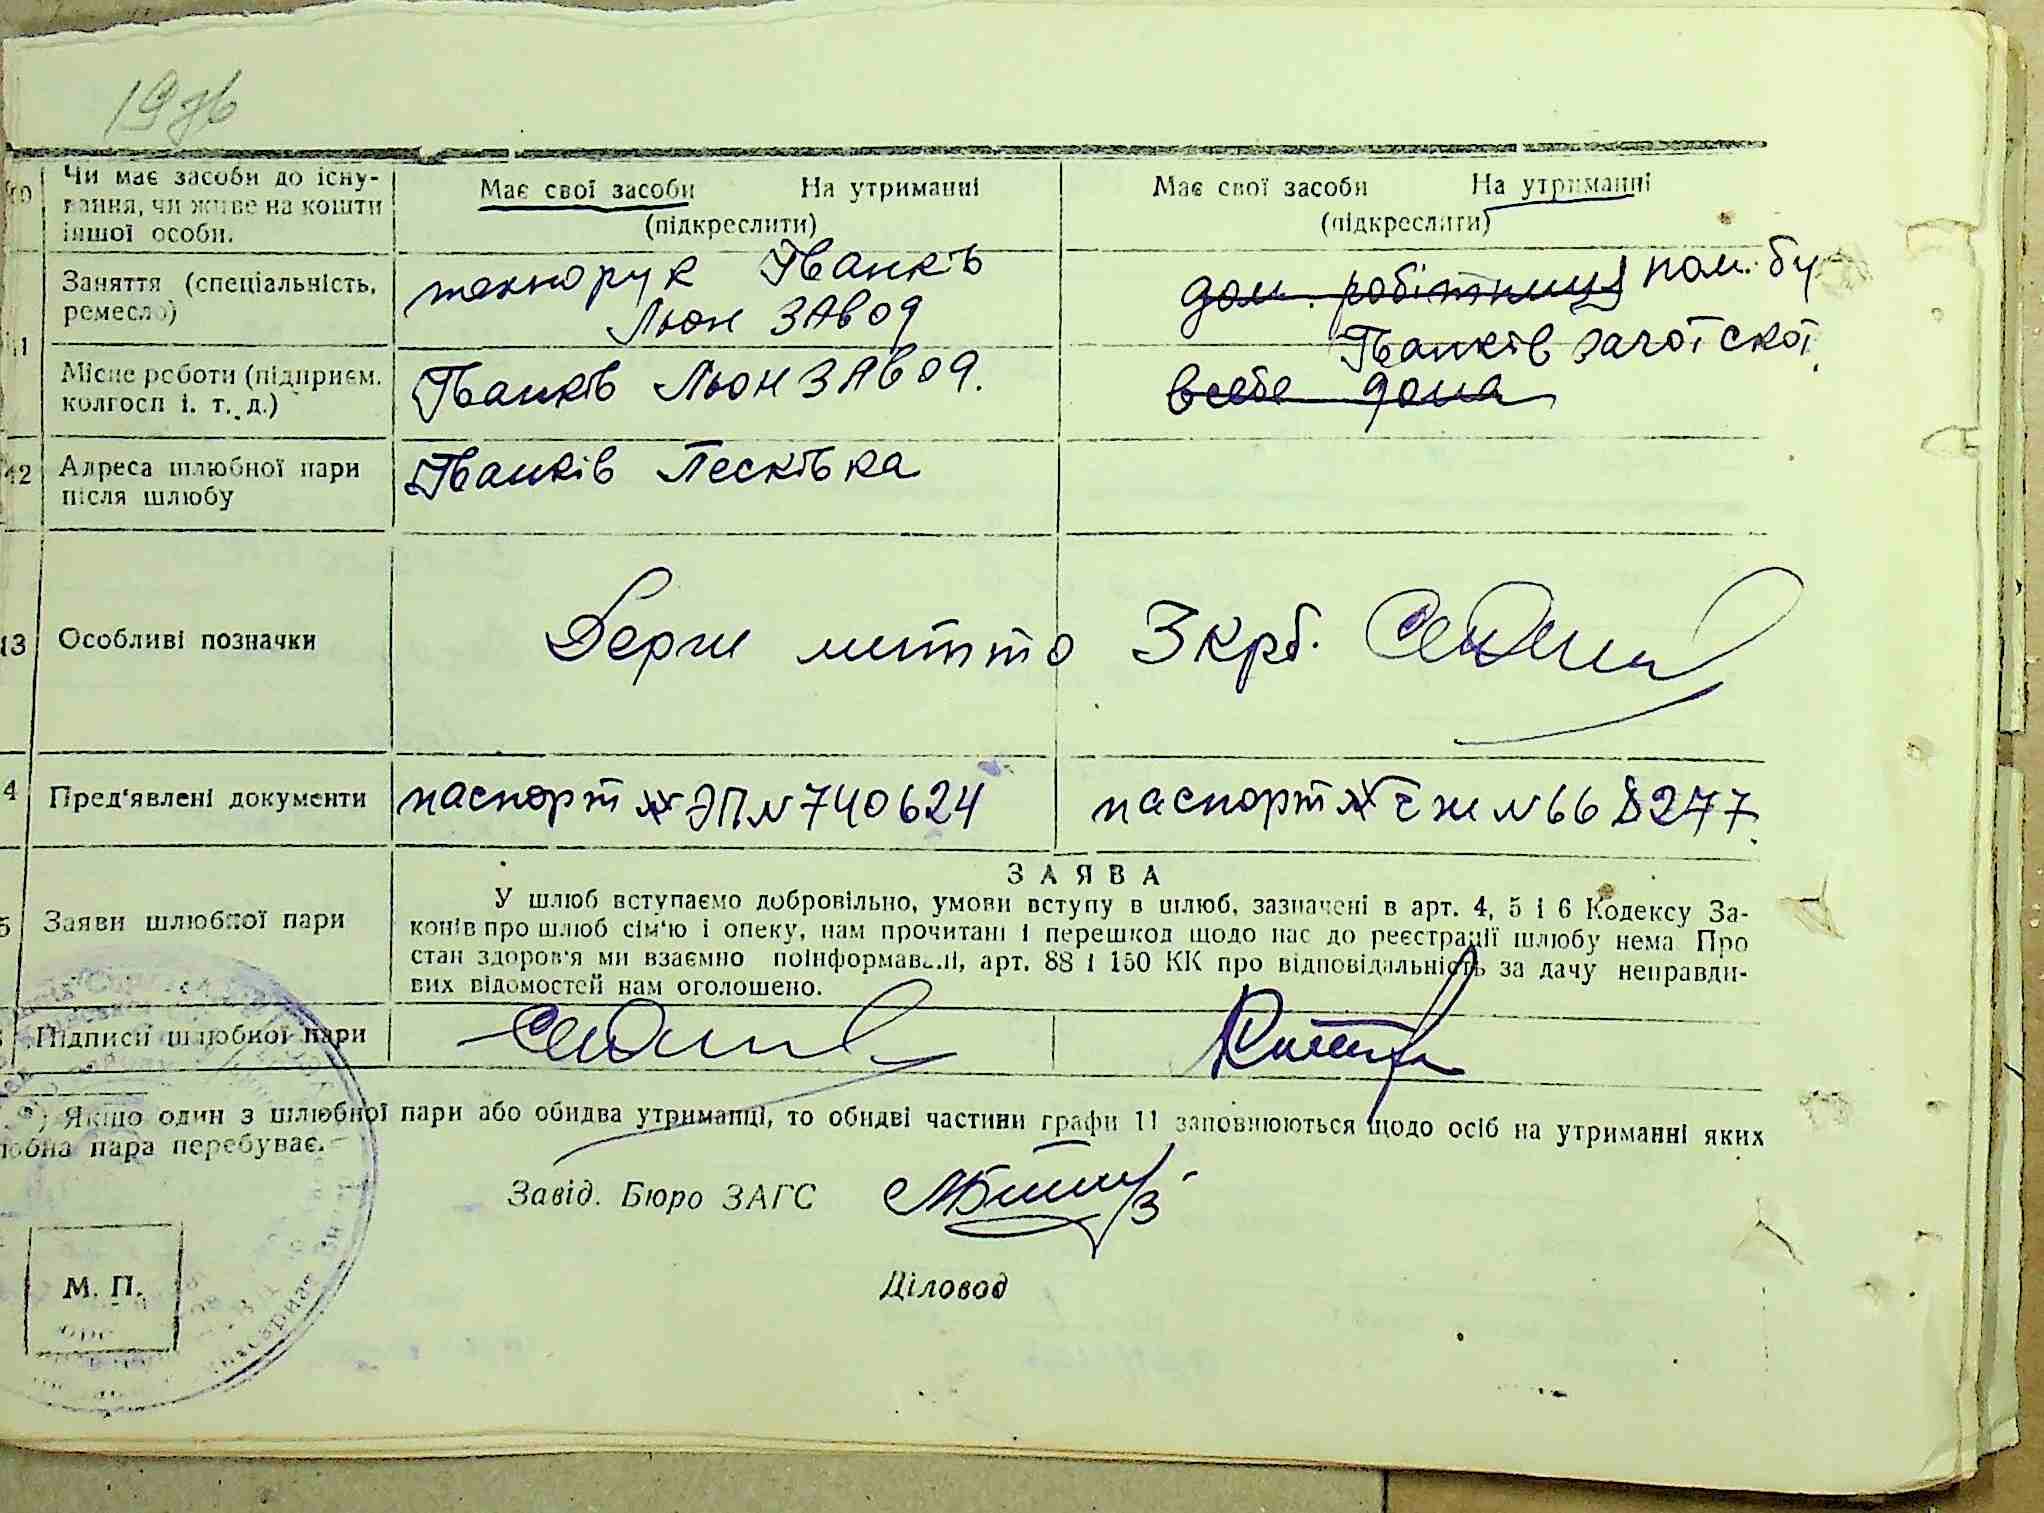 19 зв
10 Чи має засоби до існу-
вання, чи живе на кошти
іншої особи.
Має свої засоби На утриманні
(підкреслити)
Має свої засоби На утриманні
(підкреслити)
11 Заняття (спеціальність,
ремесло)
технорук Іванків
Льон завод
дом. робітниця пом. бу
Іванків заготскот
Місце роботи (підприєм.
колгосп і. т. д.)
Іванків Льонзавод.
в себе дома
12 Адреса шлюбної пари
після шлюбу
Іванків Песківка
13 Особливі позначки
Держ митто 3 крб.
14 Пред'явлені документи
паспорт ЭП № 740624
паспорт ЧЖ № 668277
15 Заяви шлюбної пари
ЗАЯВА
У шлюб вступаємо добровільно, умови вступу в шлюб, зазначені в арт. 4, 5 і 6 Кодексу За-
конів про шлюб сім'ю і опеку, нам прочитані і перешкод щодо нас до реєстрації шлюбу нема. Про
стан здоров'я ми взаємно поінформовані, арт. 88 і 150 КК про відповідальність за дачу неправди-
вих відомостей нам оголошено.
Підписи шлюбної пари
*) Якщо один з шлюбної пари або обидва утриманці, то обидві частини графи 11 заповнюються щодо осіб на утриманні яких
шлюбна пара перебуває.
Завід. Бюро ЗАГС
М. П.
Діловод